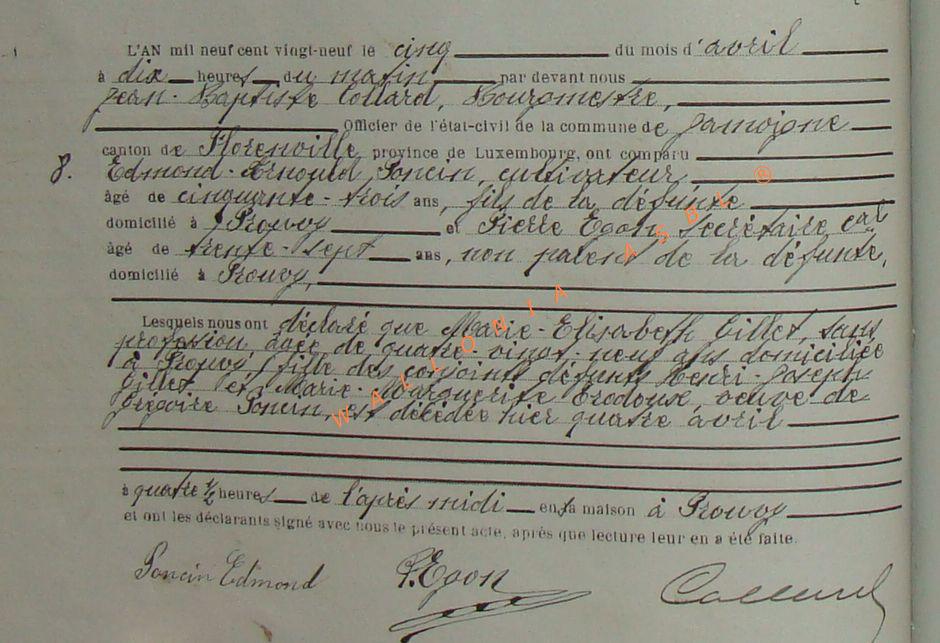 L'AN mil neuf cent vingt-neuf le cinq du mois d'avril
à dix heures du matin par devant nous
Jean-Baptiste Collard, Bourgmestre,
Officier de l'état-civil de la commune de Jamoigne
canton de Florenville province de Luxembourg, ont comparu
8. Edmond-Arnould Poncin, cultivateur
âgé de cinquante-trois ans, fils de la défunte
domicilié à Prouvy et Pierre Egon, Secrétaire cal
âgé de trente-sept ans, non parent de la défunte,
domicilié à Prouvy,
Lesquels nous ont déclaré que Marie-Elisabeth Gillet, sans
profession, âgée de quatre-vingt-neuf ans domiciliée
à Prouvy, fille des conjoints défunts Henri-Joseph
Gillet et Marie-Marguerite veuve de
Grégoire Poncin, est décédée hier quatre avril
à quatre 1/2 heures de l'après midi en sa maison à Prouvy
et ont les déclarants signé avec nous le présent acte, après que lecture leur en a été faite.
Poncin Edmond P. Egon Collard
WALLONIA ASBL ®